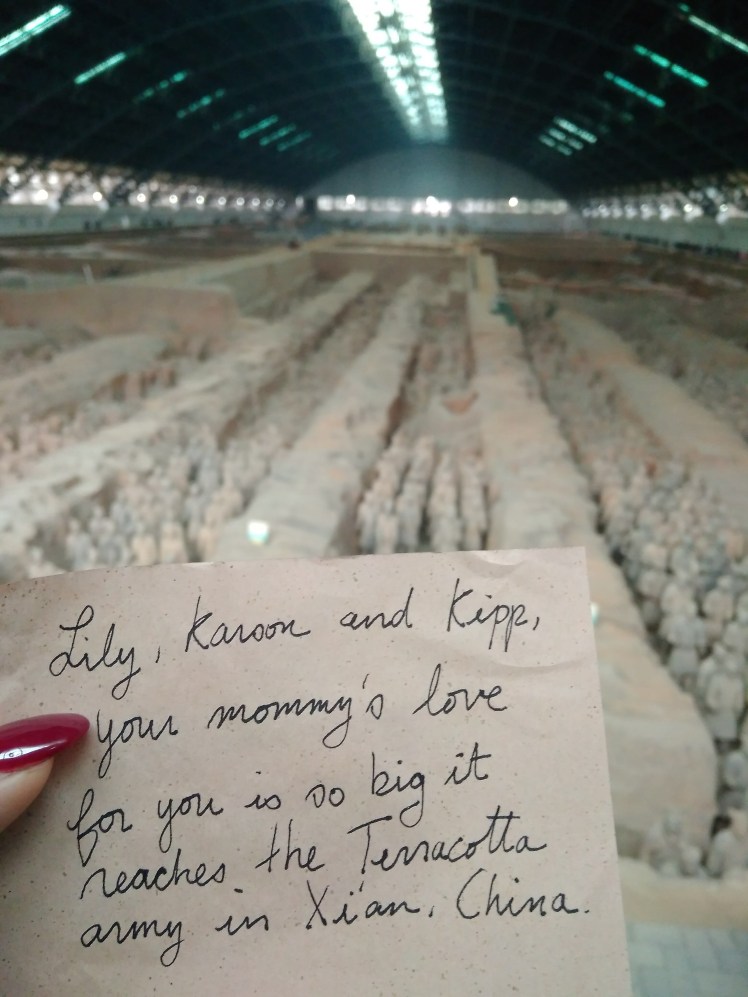 Lily, Karson and Kipp,
your mommy's love
for you is so big it
reaches the Terracotta
army in Xi'an, China.